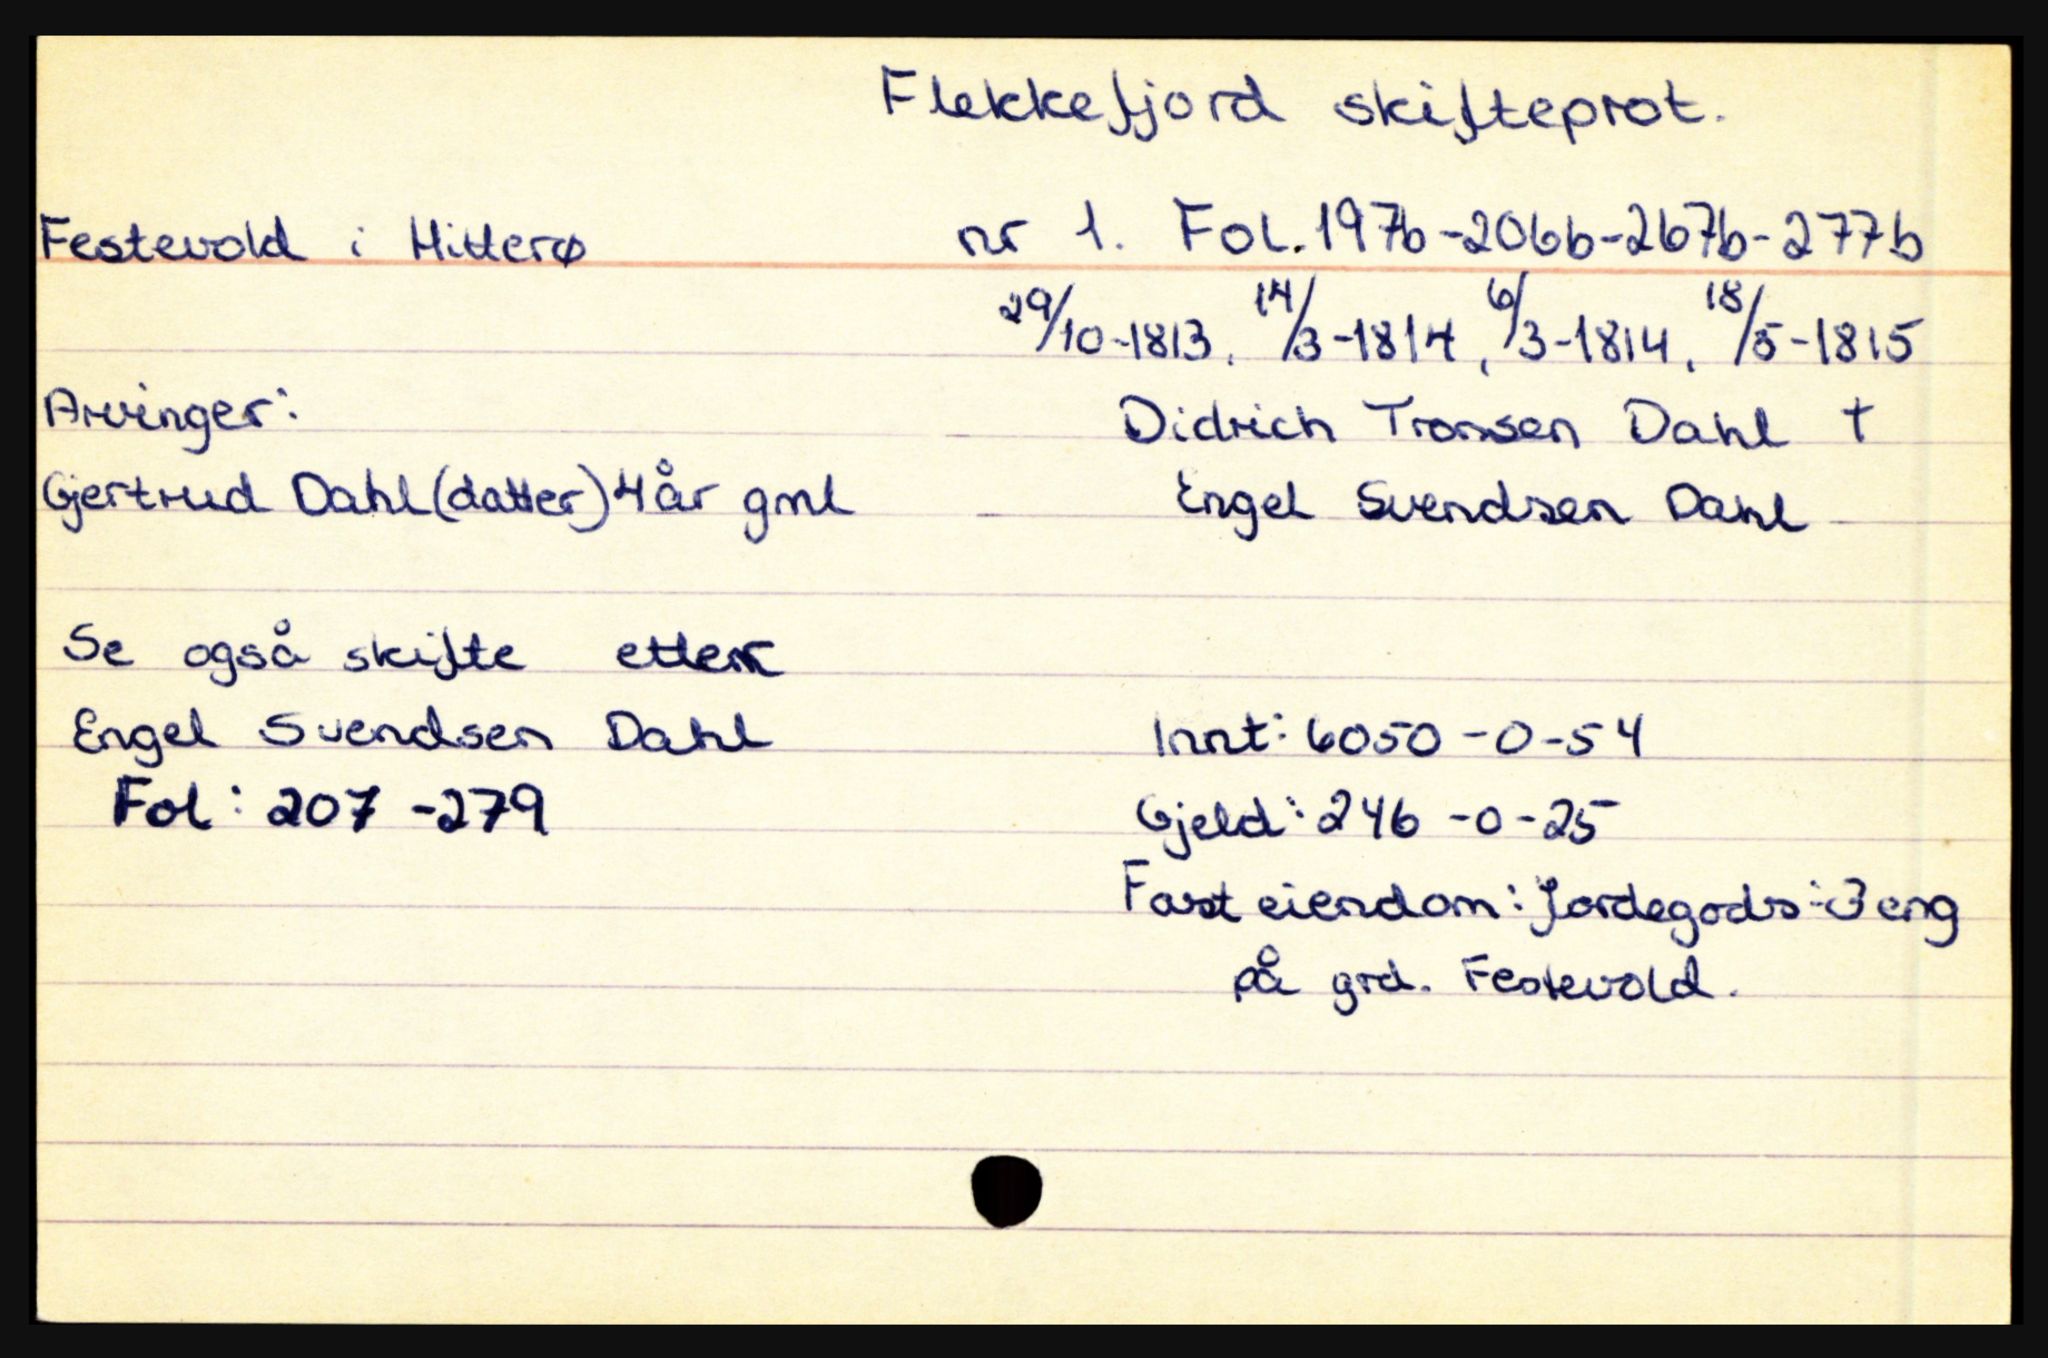 Flekkefjord skifteprot.
Festevold i Hitterø nr 1. Fol. 197b-206b-267b-277b
29/10-1813, 14/3-1814, 6/3-1814, 18/5-1815
Arvinger: Didrich Tronsen Dahl †
Gjertrud Dahl (datter) 4 år gml Engel Svendsen Dahl
Se også skifte etter
Engel Svendsen Dahl Innt: 6050-0-54
Fol: 207-279 Gjeld: 246-0-25
Fast eiendom: Jordegods i 3 eng
på grd. Festevold.